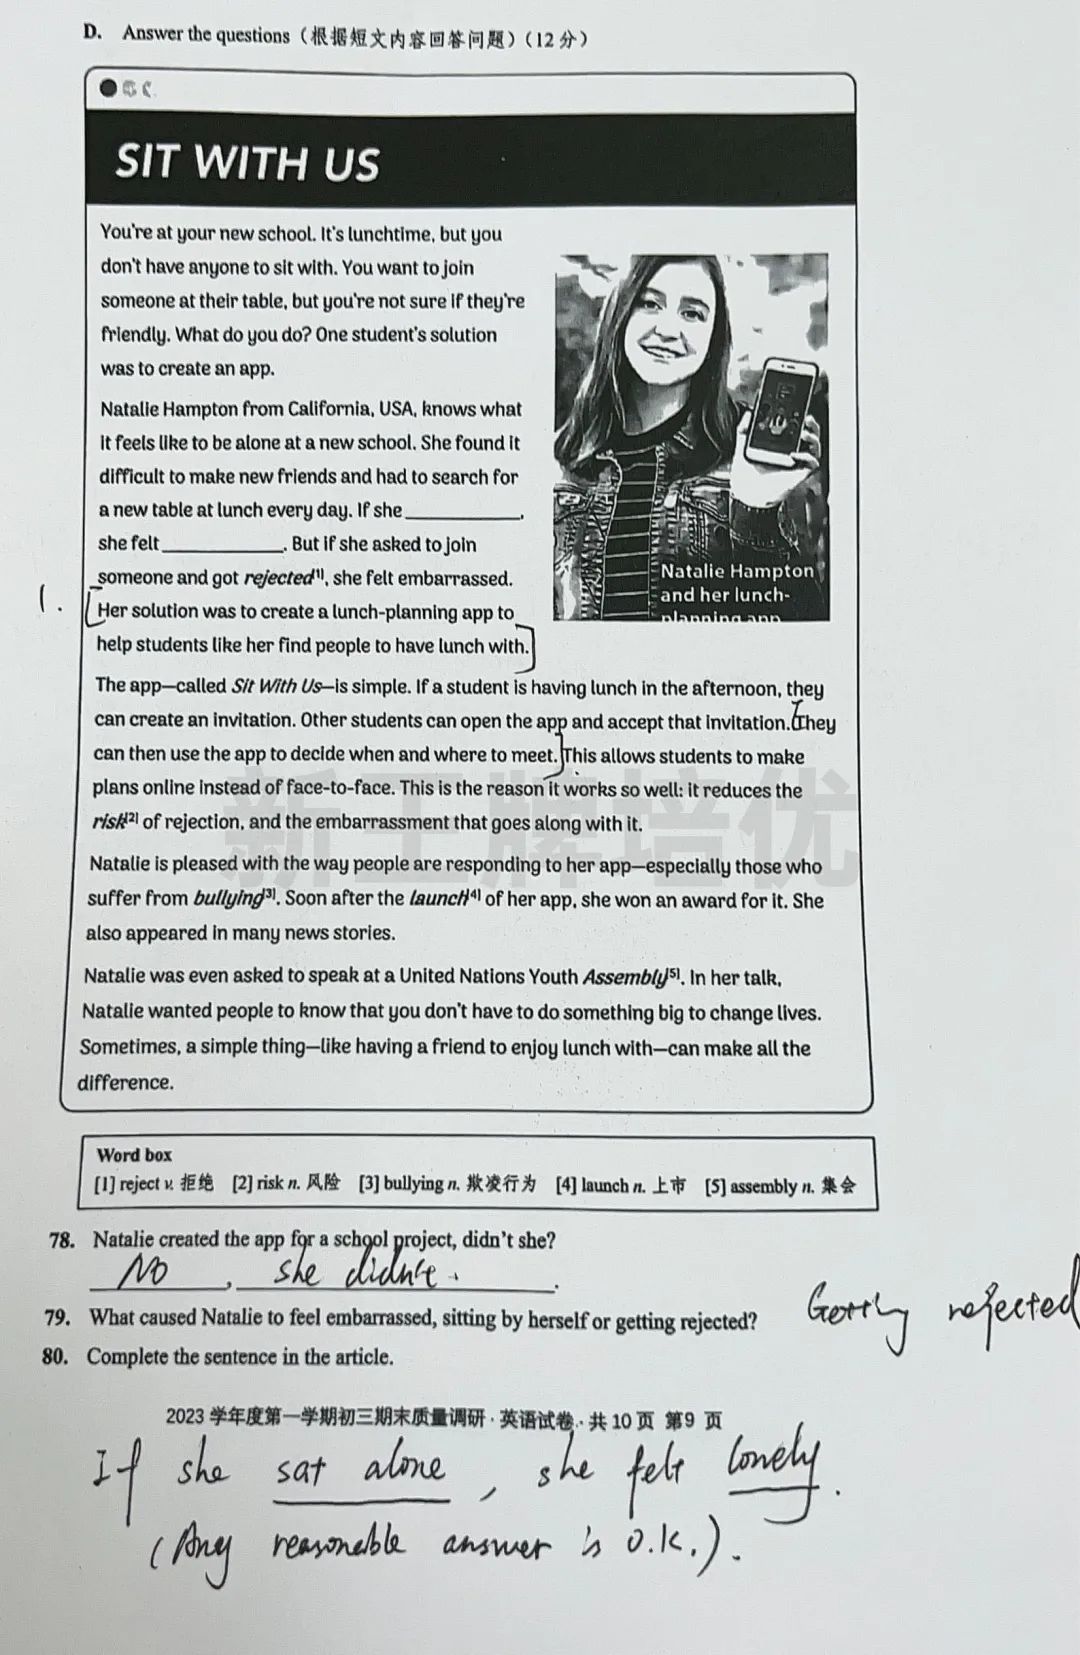 D. Answer the questions (根据短文内容回答问题) (12 分)
SIT WITH US
You're at your new school. It's lunchtime, but you
don't have anyone to sit with. You want to join
someone at their table, but you're not sure if they're
friendly. What do you do? One student's solution
was to create an app.
Natalie Hampton from California, USA, knows what
it feels like to be alone at a new school. She found it
difficult to make new friends and had to search for
a new table at lunch every day. If she ____________,
she felt ____________. But if she asked to join
someone and got rejected[1], she felt embarrassed.
1. Her solution was to create a lunch-planning app to
help students like her find people to have lunch with.
Natalie Hampton
and her lunch-
planning app
The app—called Sit With Us—is simple. If a student is having lunch in the afternoon, they
can create an invitation. Other students can open the app and accept that invitation. They
can then use the app to decide when and where to meet. This allows students to make
plans online instead of face-to-face. This is the reason it works so well: it reduces the
risk[2] of rejection, and the embarrassment that goes along with it.
新王牌培优
Natalie is pleased with the way people are responding to her app—especially those who
suffer from bullying[3]. Soon after the launch[4] of her app, she won an award for it. She
also appeared in many news stories.
Natalie was even asked to speak at a United Nations Youth Assembly[5]. In her talk,
Natalie wanted people to know that you don't have to do something big to change lives.
Sometimes, a simple thing—like having a friend to enjoy lunch with—can make all the
difference.
Word box
[1] reject v. 拒绝 [2] risk n. 风险 [3] bullying n. 欺凌行为 [4] launch n. 上市 [5] assembly n. 集会
78. Natalie created the app for a school project, didn't she?
No, she didn't.
79. What caused Natalie to feel embarrassed, sitting by herself or getting rejected? Getting rejected
80. Complete the sentence in the article.
2023 学年度第一学期初三期末质量调研·英语试卷·共 10 页 第9 页
If she sat alone, she felt lonely.
(Any reasonable answer is O.K.).